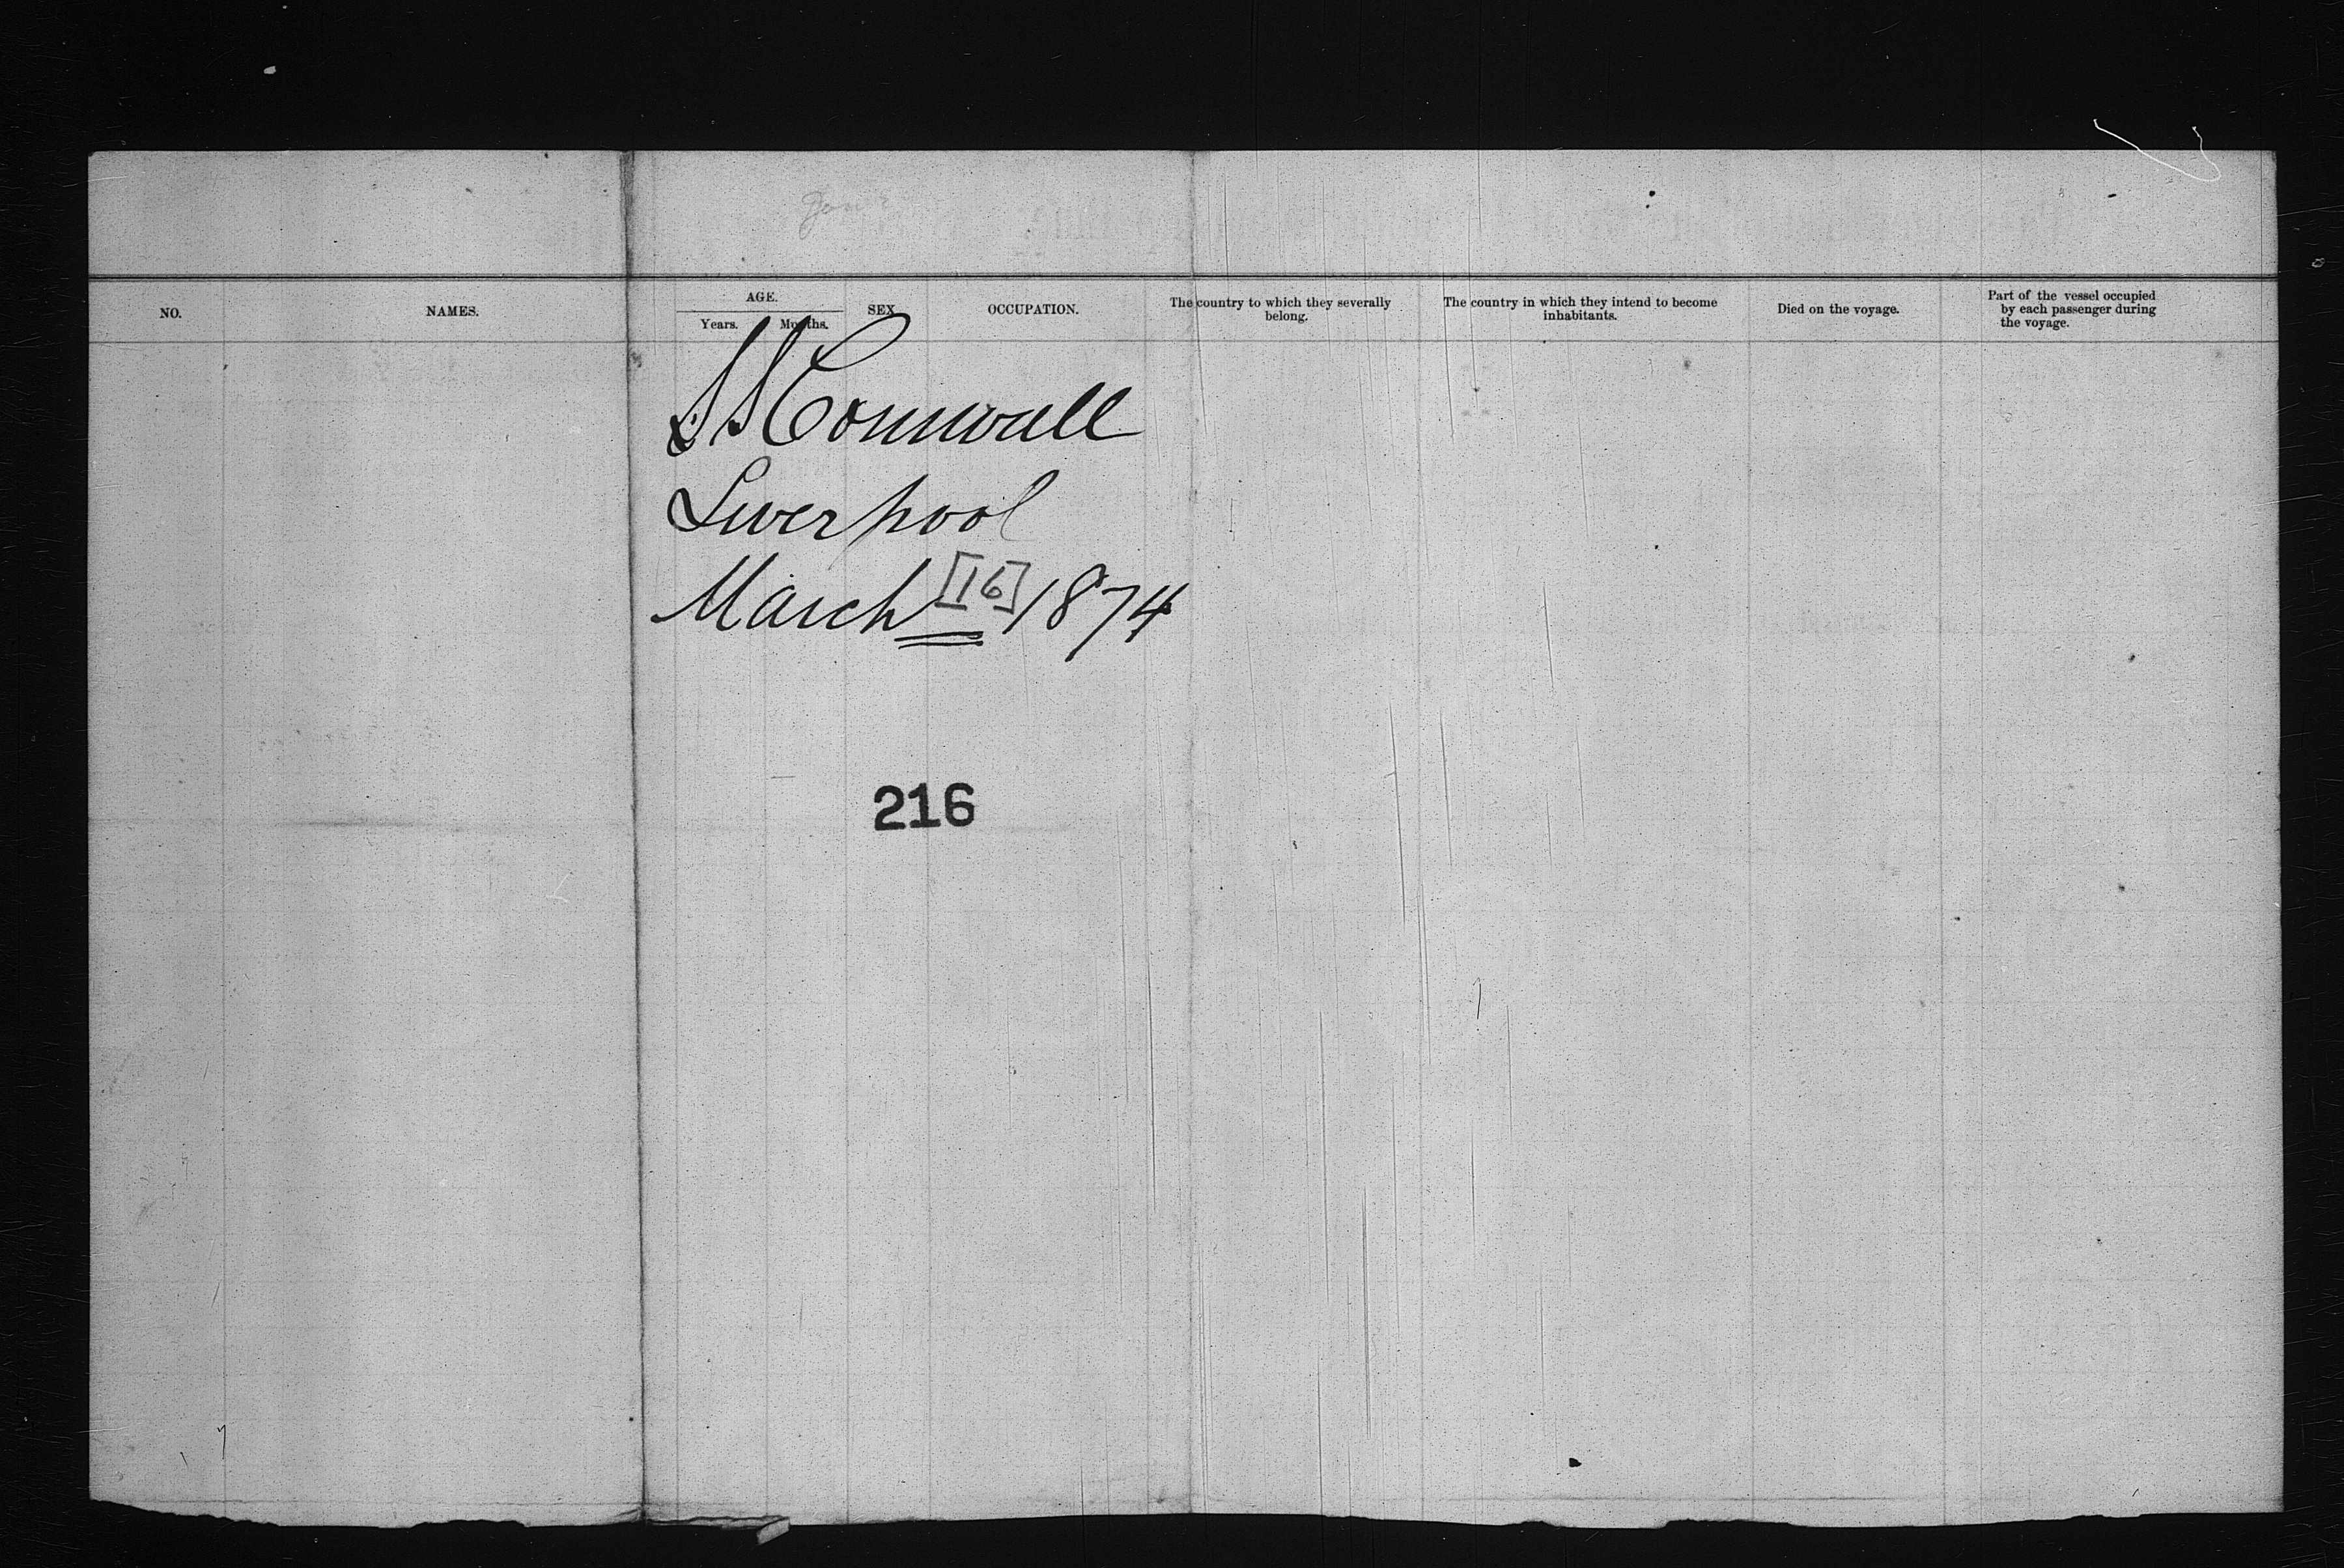 NO.
NAMES.
AGE.
Years.
Months.
SEX
OCCUPATION.
The country to which they severally
belong.
The country in which they intend to become
inhabitants.
Died on the voyage.
Part of the vessel occupied
by each passenger during
the voyage.
SS Cornwall
Liverpool
March [16] 1874
216